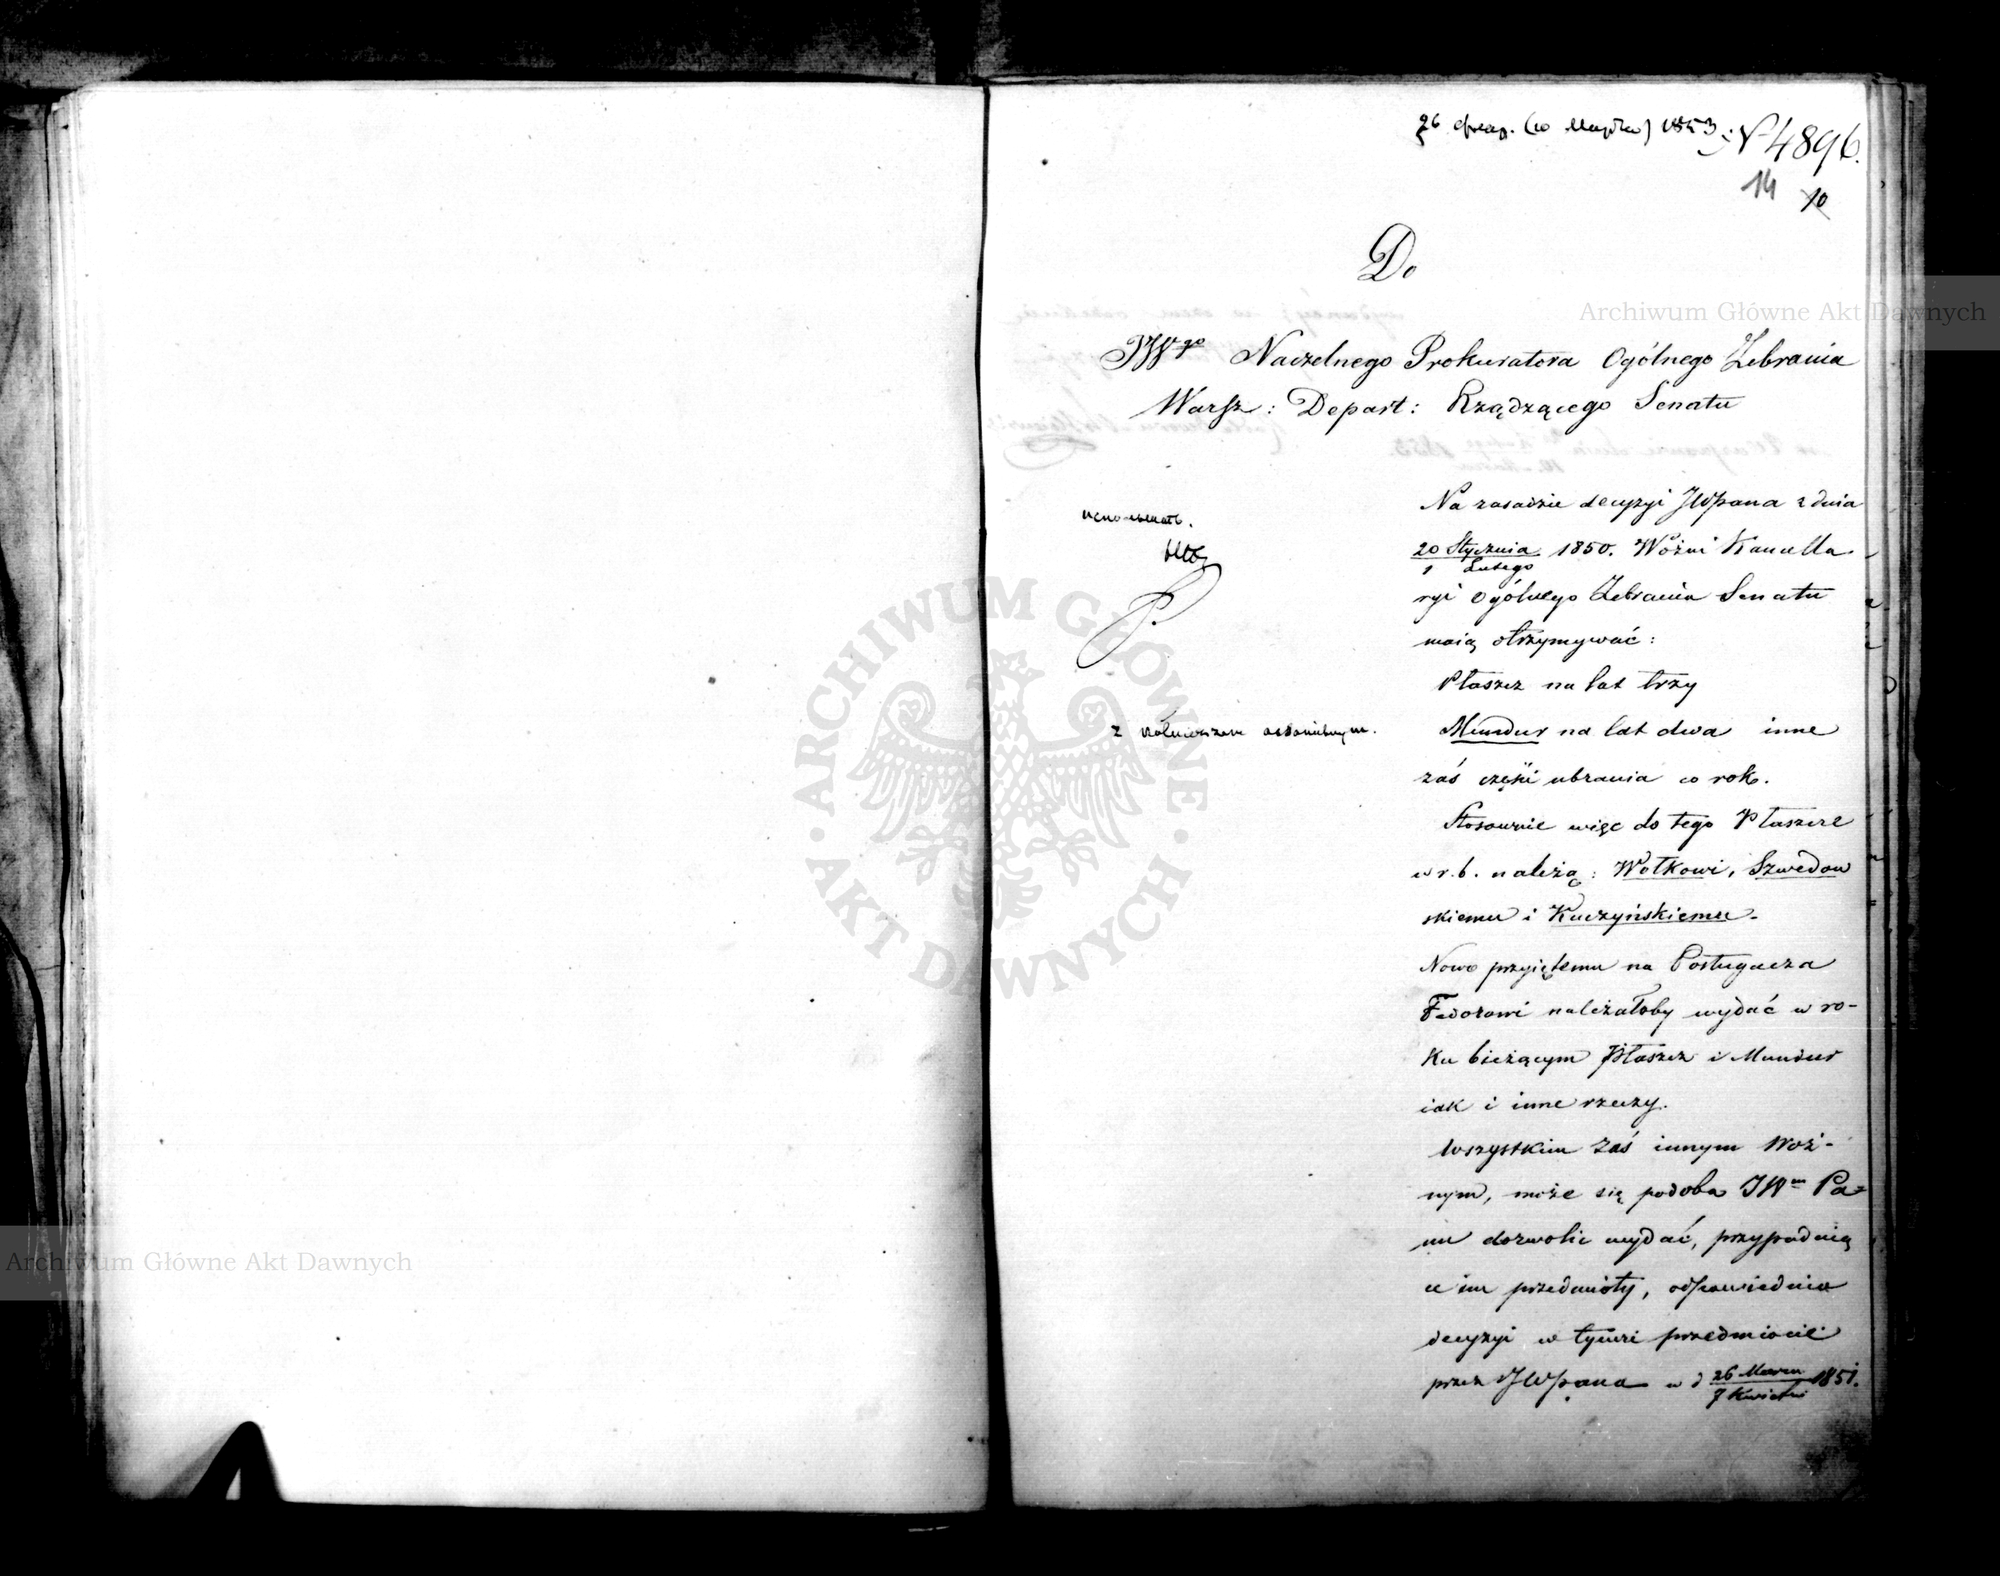 26 февр. (10 Марта) 1853. N 4896.
14 10
Do
JWgo Naczelnego Prokuratora Ogólnego Zebrania
Warsz: Depart: Rządzącego Senatu
Na zasadzie decyzyi JWPana z dnia
20 Stycznia / 1 Lutego 1850. Woźni Kancella
ryi Ogólnego Zebrania Senatu
maią otrzymywać:
Płaszcz na lat trzy
z kołnierzem
Mundur na lat dwa inne
zaś części ubrania co rok.
Stosownie więc do tego Płaszcze
w r. b. należą: Wołkowi, Szwedow
skiemu i Kuczyńskiemu.
Nowo przyiętemu na Posługacza
Fedorowi należałoby wydać w ro-
ku bieżącym Płaszcz i Mundur
iak i inne rzeczy.
Wszystkim zaś innym Woź-
nym, może się podoba JWm Pa-
nu dozwolić wydać, przypadaią
ce im przedmioty, odpowiednio
decyzyi w tymże przedmiocie
przez JWPana w d 26 Marca / 7 Kwietni 1851.
Archiwum Główne Akt Dawnych
Archiwum Główne Akt Dawnych
ARCHIWUM GŁÓWNE · AKT DAWNYCH ·